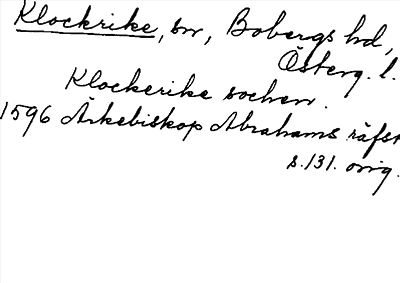 Klockrike, sn, Bobergs hd,
Österg. l.
Klockerike sochen.
1596 Ärkebiskop Abrahams räfst
s. 131. orig.